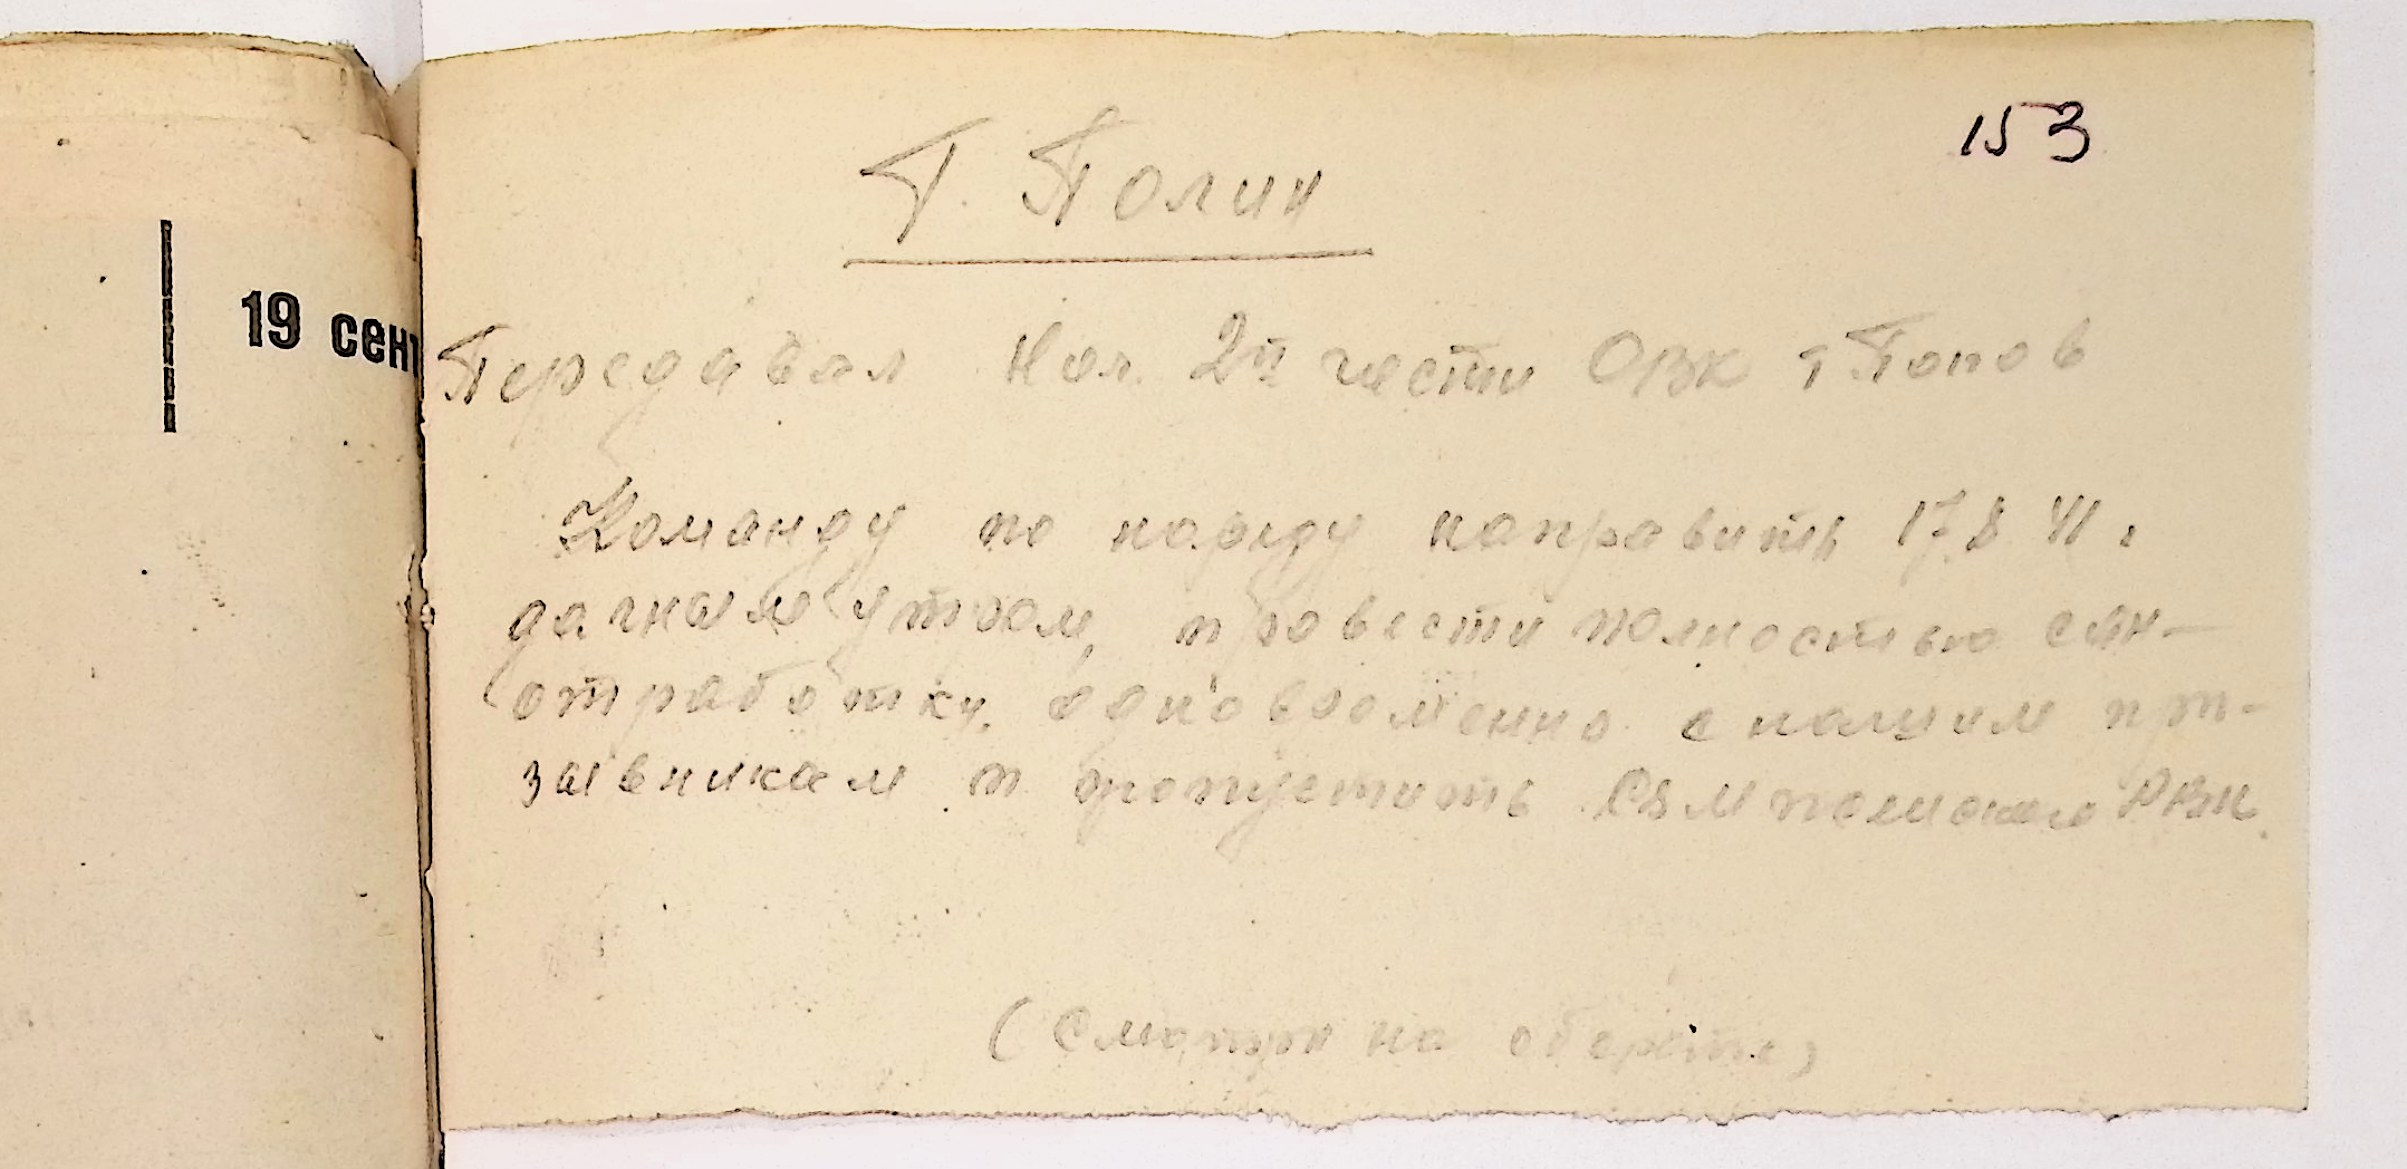 153
Т. Полин
19 сент
Передавал Нач. 2й части ОВК т Попов
Команду по наряду направить 17.8 41 г
утром, провести полностью сан-
отработку, одновременно с нашим пр
зывникам пропустить РВК.
(Смотри на оберете)